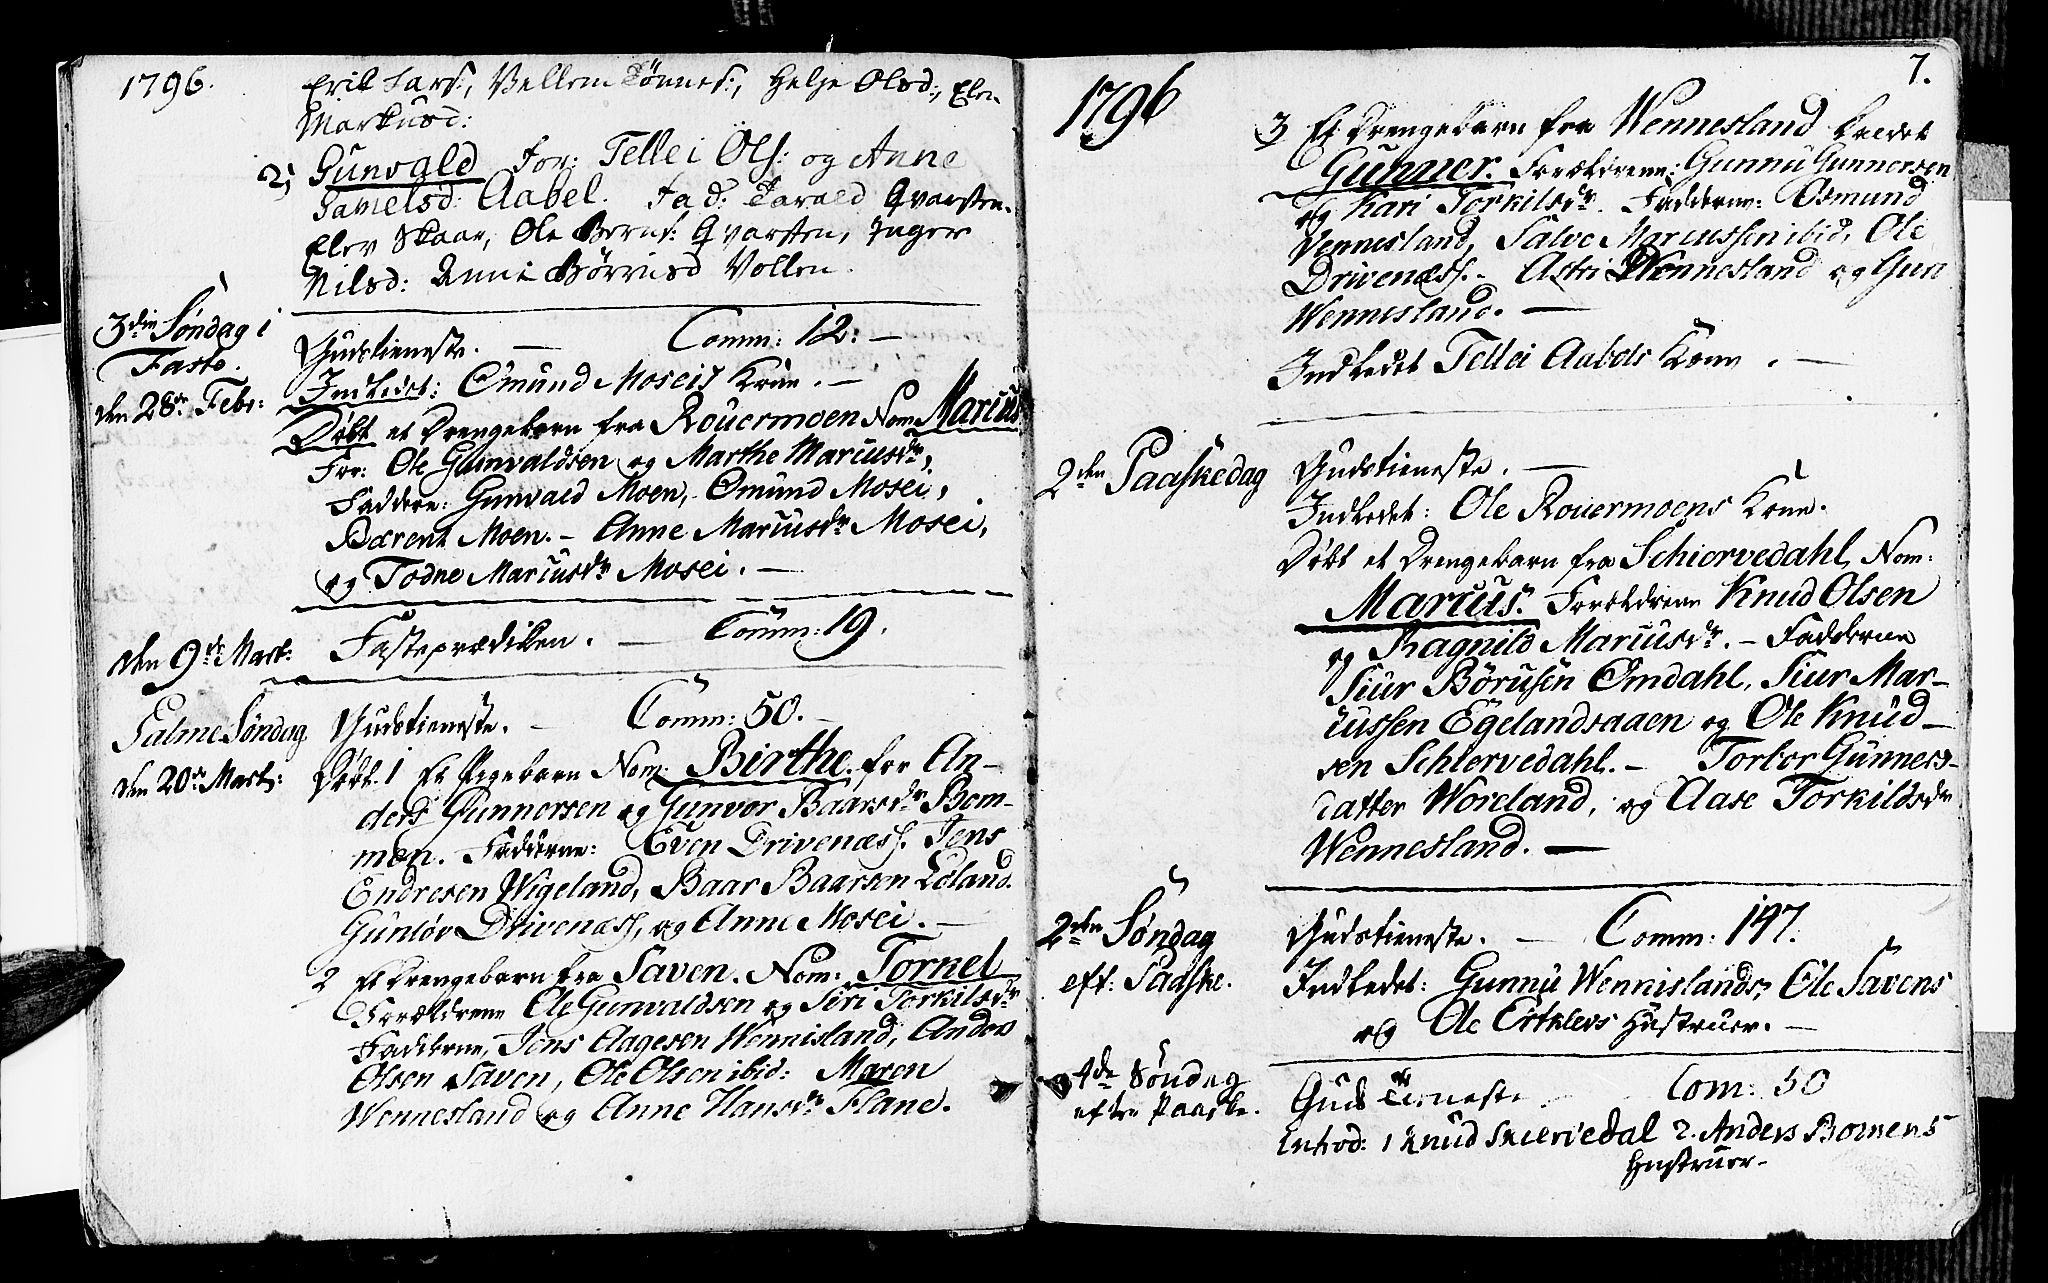 1796.
Erik Lars:, Vellem Tönnes:, Helje Olsd:, Elen
Markusd:
2, Gunvald For: Tellei Ols: og Anne
Samelsd: Aabel. Fad: Tarald Qvarsten.
Elev Skaar, Ole Bernt: Qvarsten, Inger
Nilsd: Anne Börrusd Vollen.
3die Søndag i
Faste.
den 28de Febr:
Gudstieneste. — Comm: 12: —
Indledet: Omund Moseis Kone. —
Døbt et Drengebarn fra Rouermoen Nom: Marcus
For: Ole Gunvaldsen og Marthe Marcusdr,
Faddere: Gunvald Moen, Omund Mosei,
Bærent Moen. — Anne Marcusdr Mosei,
og Todne Marcusdr Mosei. —
den 9de Mart: Fasteprædiken. — Comm: 19.
Palme Søndag
den 20de Mart:
Gudstieneste. — Comm: 50. —
Døbt. 1 Et Pigebarn Nom: Birthe. for An-
ders Gunnersen og Gunvor Baarsdr Bom-
men. Fadderne: Even Drivenæss. Jens
Endresen Wigeland, Baar Baarsen Loland.
Gunlöv Drivenæss, og Anne Mosei. —
2 Et Drengebarn fra Saven. Nom: Torkel
Forældrene Ole Gunvaldsen og Siri Torkilsdr
Fadderne, Jens Aagesen Wennisland, Anders
Olsen Saven, Ole Olsen ibid: Maren
Wennesland og Anne Hansdr Flane.
7.
1796
3 Et Drengebarn fra Wennesland kaldet
Gunner. Forældrene: Gunnu Gunnersen
og Kari Torkilsdr. Fadderne: Osmund
Vennesland, Salve Marcussen ibid, Ole
Drivenæss. — Astri Wennesland og Guri
Wennesland. —
Indledet Tellei Aabels Kone. —
2den Paaskedag Gudstieneste. —
Indledet: Ole Rouermoens Kone.
Døbt et Drengebarn fra Schiervedahl, Nom:
Marcus. Forældrene Knud Olsen
og Ragnild Marcusdr. — Fadderne
Siur Börusen Omdahl, Siur Mar-
cussen Egelandsaaen og Ole Knud-
sen Schiervedahl. — Torbor Gunners-
datter Woreland, og Aase Torkildsdr
Wennesland. —
2den Søndag
eft: Paaske.
Gudstieneste. — Comm: 147.
Indledet: Gunnu Wennislands, Ole Savens
og Ole Erklevs Hustruer. —
4de Søndag
efter Paaske.
Guds Tieneste Com: 50
Introd: 1 Knud Skiervedal 2. Anders Bomens
Hustruer —